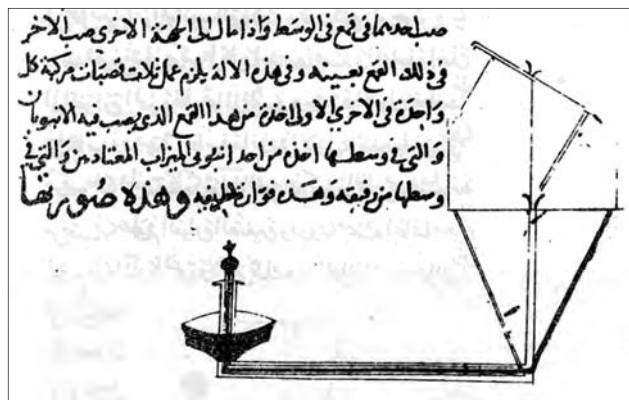 صب احدىهما فى قمع فى الوسط واذا مال الى الجهة الاخرى صب الاخر
فى ذلك القمع بعينه وفى هذه الالة يلزم عمل ثلاث قصبات مركبة كل
واحدة فى الاخرى الاولى اخذة من هذا القمع الذى يصب فيه الانبوبان
والتى فى وسطها اخذة من احد انبوبى الميزاب المعتادين والتى فى
وسطها من رفيقه وهذه فوارة لطيفه وهذه صورتها